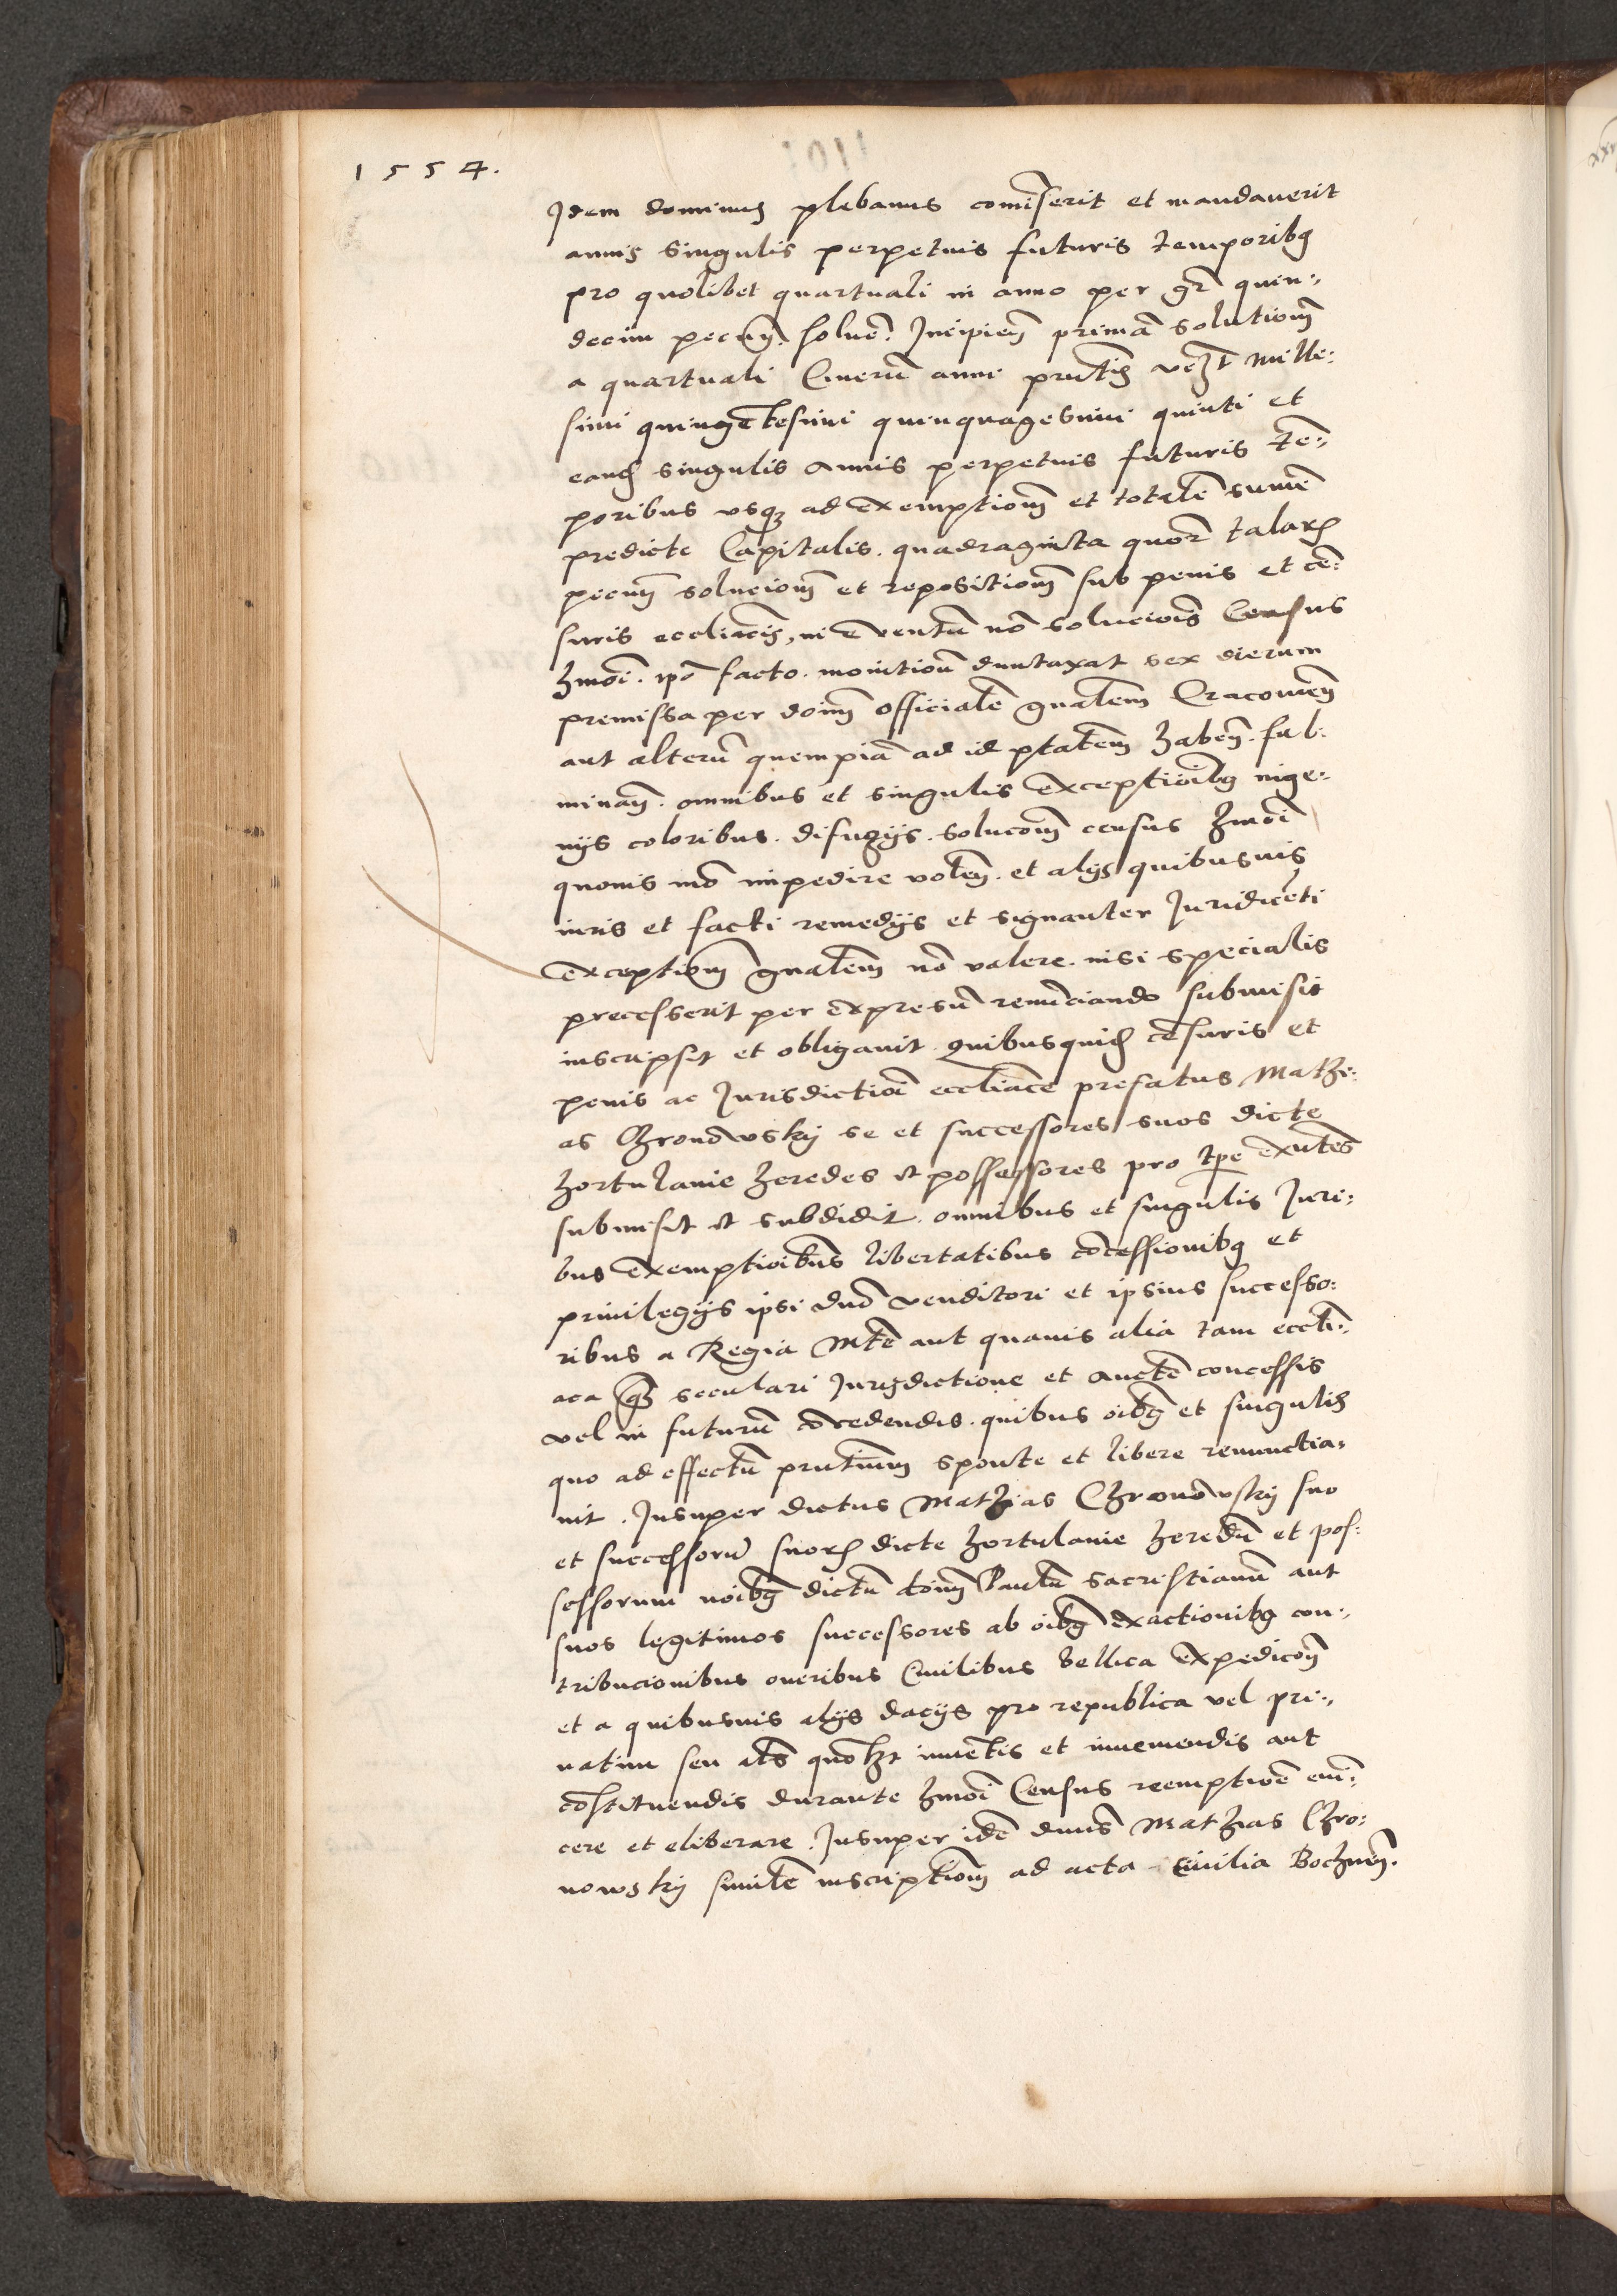 1554.
Idem dominus plebanus comiserit et mandauerit
annis singulis perpetuis futuris temporibq
pro quolibet quartuali in anno per gr quin:
decim pecun. solue. Incipien prima solution
a quartuali Cinerum anni pntis vezt mille:
simi quingetesimi quinquagesimi quinti et
eand singulis annis perpetuis futuris te:
poribus vsq ad exemption et totale sume
predicte Capitalis. quadraginta quor talar
pecun solucion et reposition sub penis et ce:
suris eccliacis, in euentu no solucois Census
hmoi. ipo facto. monition duntaxat sex dierum
premissa per doim officiale gnalem Cracouien
aut alteru quempia ad id ptatem haben. ful:
minan. omnibus et singulis exceptioibq inge:
nijs coloribus. difugijs. solucom census hmoi
quouis mo impedire volen. et alijs quibusuis
iuris et facti remedijs et signanter Juridiceti
exceptiom gnalem no valere. nisi specialis
precesserit per expresu renunciando submisit
inscripsit et obligauit. Quibusquid cesuris et
penis ac Jurisdictioi eccliace prefatus Mathi:
as Chronowsky se et successores suos dicte
hortulanie heredes et possessores pro tpe exntes
submisit et subdidit. omnibus et singulis Juri:
bus exemptioibus libertatibus cocessionibq et
priuilegijs ipsi dno venditori et ipsius successo:
ribus a Regia Mte aut quauis alia tam eccli:
aca q seculari Jurisdictione et aucte concessis
vel in futuru cocedendis. quibus oibq et singulis
quo ad effectu pntium sponte et libere renunctia:
uit. Insuper dictus Mathias Chronowsky suo
et successoru suor dicte hortulanie heredu et pos:
sessorum noibq dictu doim Paulu sacristianu aut
suos legitimos successores ab oibq exactionibq con:
tribucionibus oneribus Ciuilibus bellica expedicon
et a quibusuis alijs dacijs pro republica vel pri:
uatim seu als quolzt inuetis et inueniendis aut
costituendis durante hmoi Census reemptioe eui:
cere et eliberare. Insuper ide dnus Mathias Chro:
nowsky simile inscription ad acta Ciuilia Bochnen.